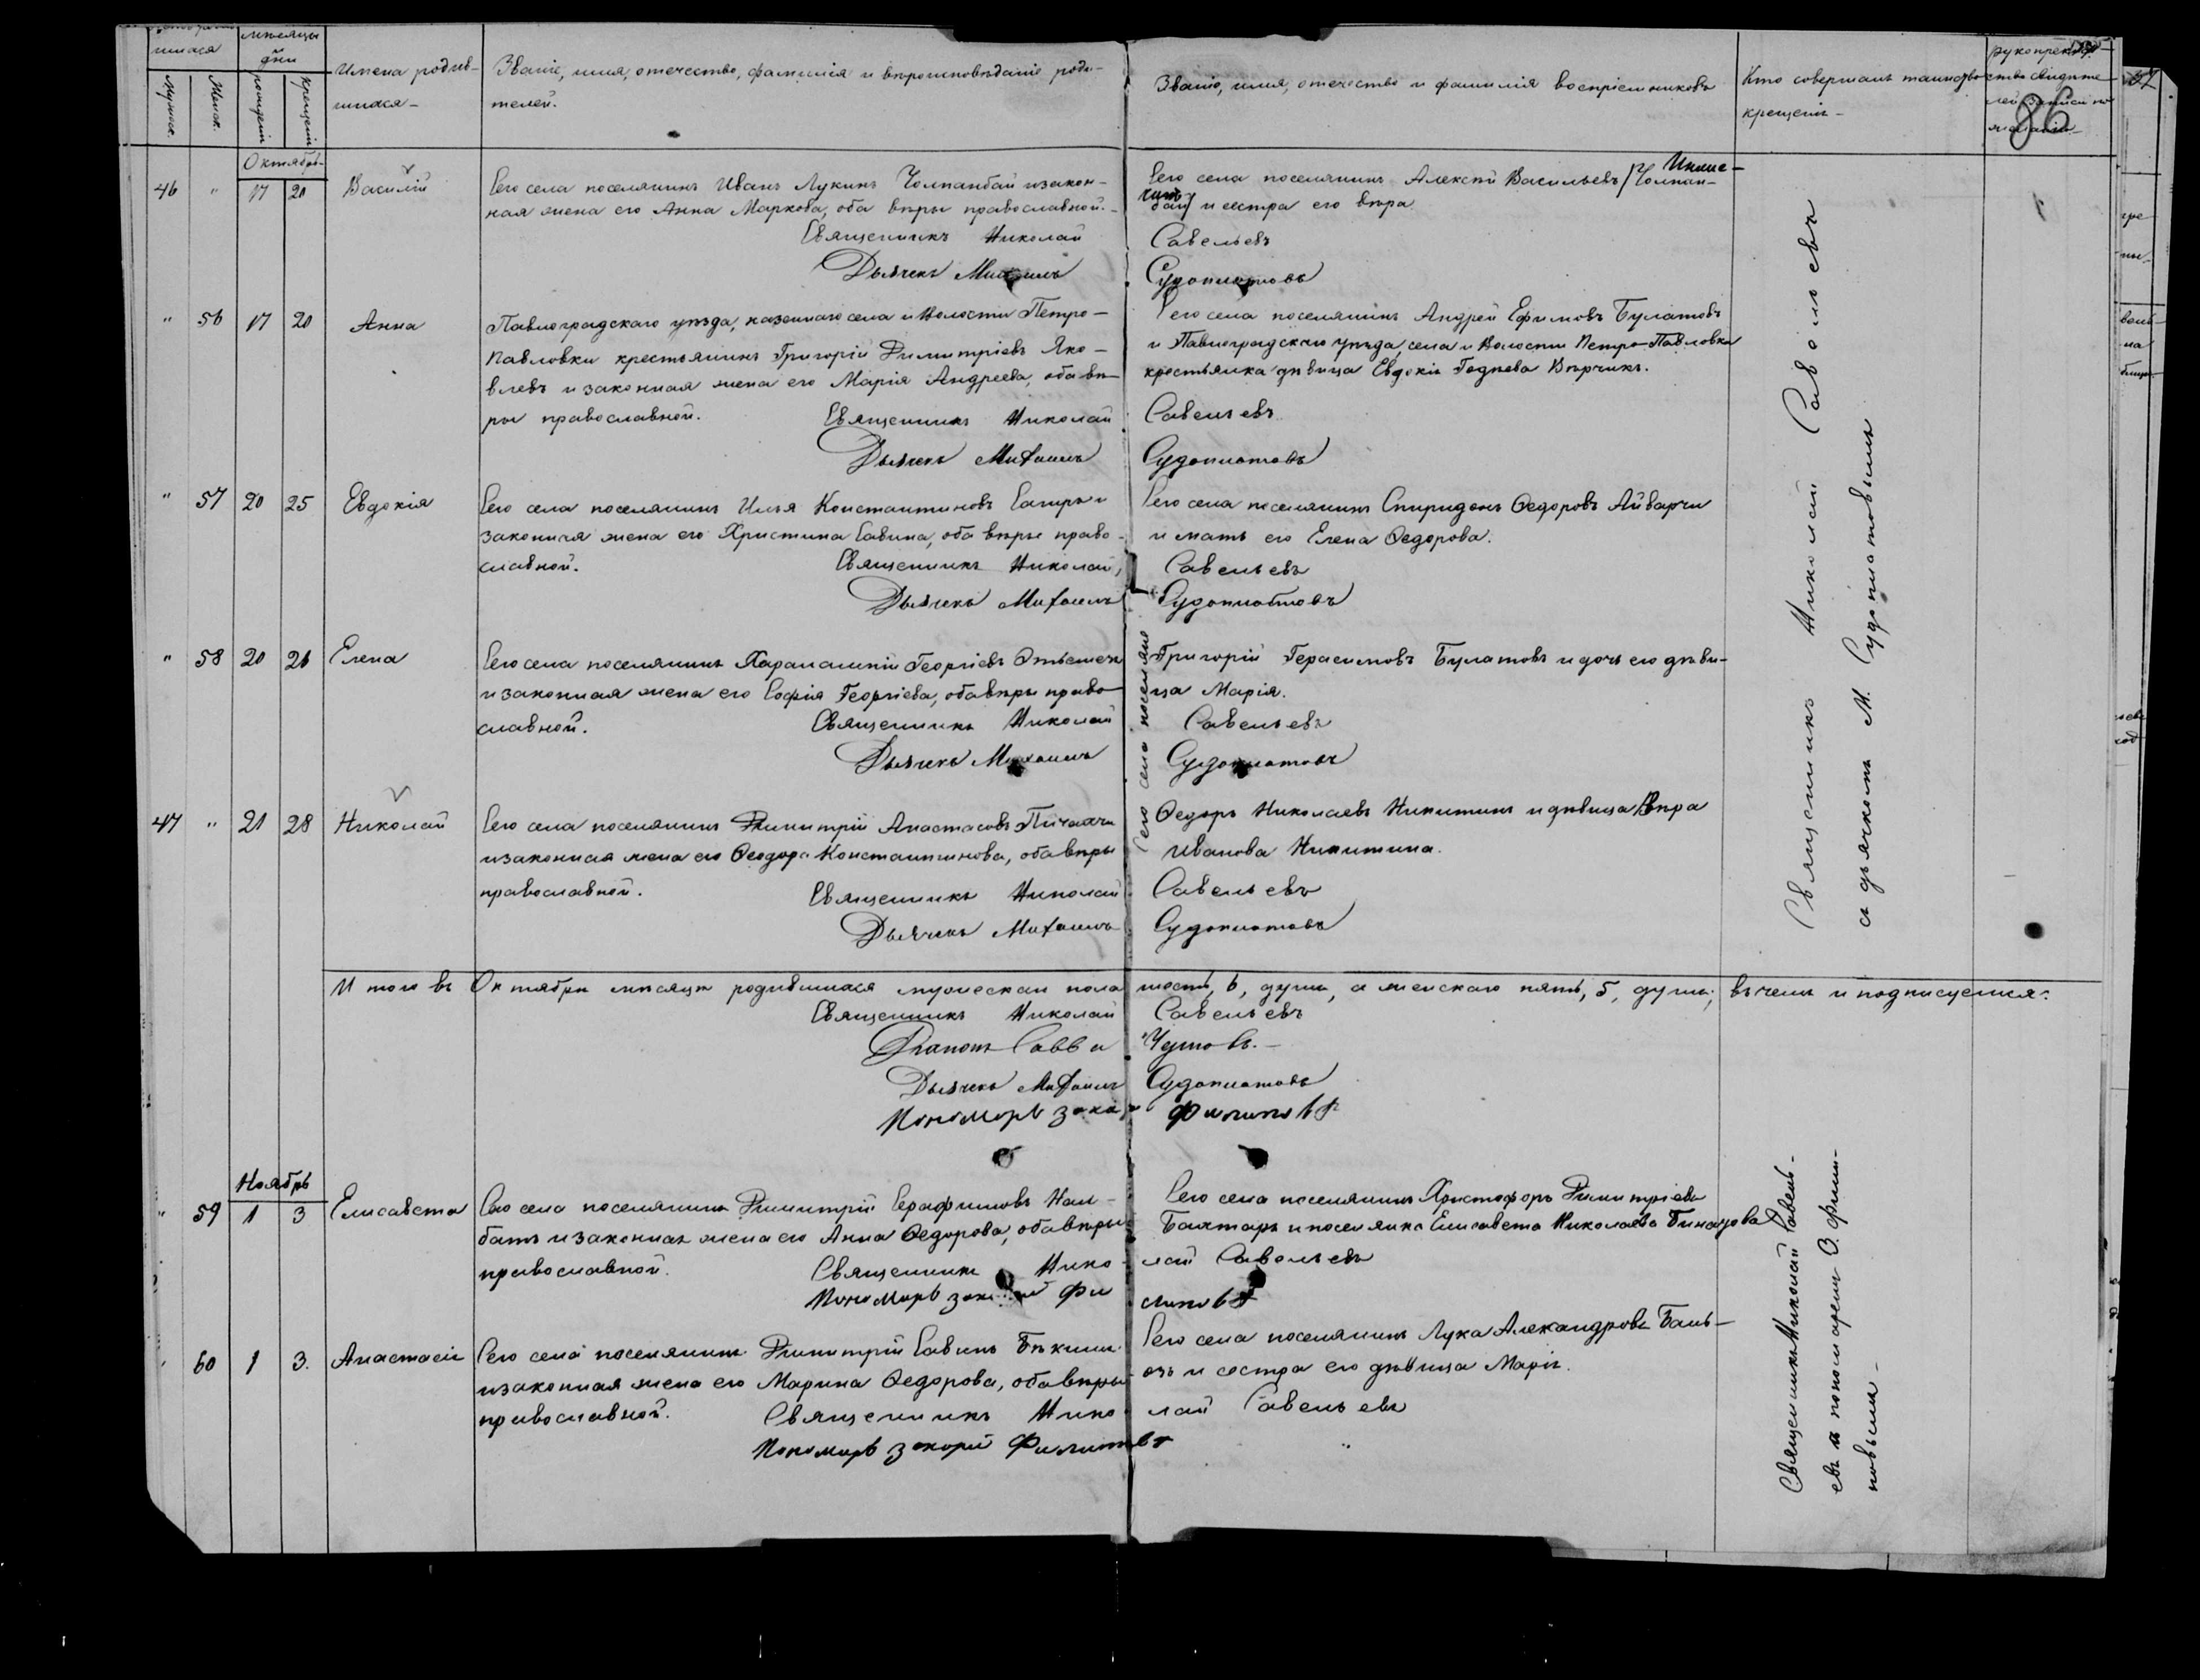 мѣсяцы
дни
Имена родив-
шихся-
Званіе, имя, отечество, фамилія и вѣроисповѣданіе роди-
телей.
Званіе, имя, отечество и фамилія воспріемниковъ
Кто совершалъ таинство
крещенія-
86
Мужеск.
Женск.
рожденія
крещенія
Октябрь
46 " 17 20 Василій
Сего села поселянинъ Иванъ Лукинъ Чолпанбай и закон-
ная жена его Анна Маркова, оба вѣры православной.-
Священникъ Николай Савельевъ
Дьячекъ Михаилъ Судоплатовъ
Сего села поселянинъ Алексѣй Васильевъ /Чолпан-
бай/ и сестра его Вѣра
" 56 17 20 Анна
Павлоградскаго уѣзда, казеннаго села и Волости Петро-
павловки крестьянинъ Григорій Димитріевъ Яко-
влевъ и законная жена его Марія Андреева, оба вѣ-
ры православной.
Священникъ Николай Савельевъ
Дьячекъ Михаилъ Судоплатовъ
Сего села поселянинъ Андрей Ефимовъ Булатовъ
и Павлоградскаго уѣзда, села и Волости Петро-Павловки
крестьянка дѣвица Евдокія
" 57 20 25 Евдокія
Сего села поселянинъ Илья Константиновъ и
законная жена его Христина Савина, оба вѣры право-
славной.
Священникъ Николай Савельевъ
Дьячекъ Михаилъ Судоплатовъ
Сего села поселянинъ Спиридонъ Ѳедоровъ Айварчи
и мать его Елена Ѳедорова.
" 58 20 26 Елена
Сего села поселянинъ Харалампій Георгіевъ
и законная жена его Софія Георгіева, оба вѣры право-
славной.
Священникъ Николай Савельевъ
Дьячекъ Михаилъ Судоплатовъ
Сего села поселяне
Григорій Герасимовъ Булатовъ и дочь его дѣви-
ца Марія.
47 " 21 28 Николай
Сего села поселянинъ Димитрій Анастасовъ
и законная жена его Ѳеодора Константинова, оба вѣры
православной.
Священникъ Николай Савельевъ
Дьячекъ Михаилъ Судоплатовъ
Ѳедоръ Николаевъ Никитинъ и дѣвица Вѣра
Иванова Никитина.
Священникъ Николай Савельевъ
съ дьячкомъ М. Судоплатовымъ
И того въ Октябрѣ мѣсяцѣ родившихся мужескаго пола шесть, 6, душъ, а женскаго пять, 5, душъ, въ чемъ и подписуемся:
Священникъ Николай Савельевъ
Діаконъ Савва
Дьячекъ Михаилъ Судоплатовъ
Пономарь Захарій Филиповъ
Ноябрь
" 59 1 3 Елисавета
Сего села поселянинъ Димитрій Серафимовъ Нал-
батъ и законная жена его Анна Ѳедорова, оба вѣры
православной.
Священникъ Николай Савельевъ
Пономарь Захарій Филиповъ
Сего села поселянинъ Христофоръ Димитріевъ
Бахтаръ и поселянка Елисавета Николаева
" 60 1 3. Анастасія
Сего села поселянинъ Димитрій Савинъ
и законная жена его Марина Ѳедорова, оба вѣры
православной.
Священникъ Николай Савельевъ
Пономарь Захарій Филиповъ
Сего села поселянинъ Лука Александровъ
и сестра его дѣвица Марія.
Священникъ Николай Савель-
евъ и пономаремъ З. Фили-
повымъ-